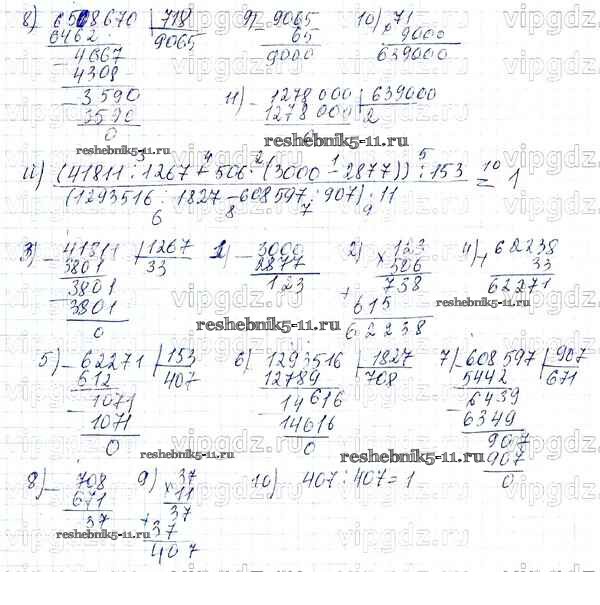 8) 6508670 | 718 9) - 9065 10) × 71
6462 | 9065 65 9000
- 4667 9000 639000
4308
- 3590 11) - 1278000 | 639000
3590 1278000 | 2
0
reshebnik5-11.ru
(41811 : 1267 + 506 · (3000 - 2877)) : 153 = 1
(1293516 : 1827 - 608597 : 907) · 11
3) - 41811 | 1267 1) - 3000 2) × 123 4) + 62238
3801 | 33 2877 506 33
- 3801 123 738 62271
3801 + 615
0 62238
reshebnik5-11.ru
5) - 62271 | 153 6) 1293516 | 1827 7) - 608597 | 907
612 | 407 12789 | 708 5442 | 671
- 1071 14616 - 6439
1071 14616 6349
0 0 907
907
0
reshebnik5-11.ru
8) - 708 9) × 37 10) 407 : 407 = 1
671 11
37 37
+ 37
407
reshebnik5-11.ru
vipgdz.ru